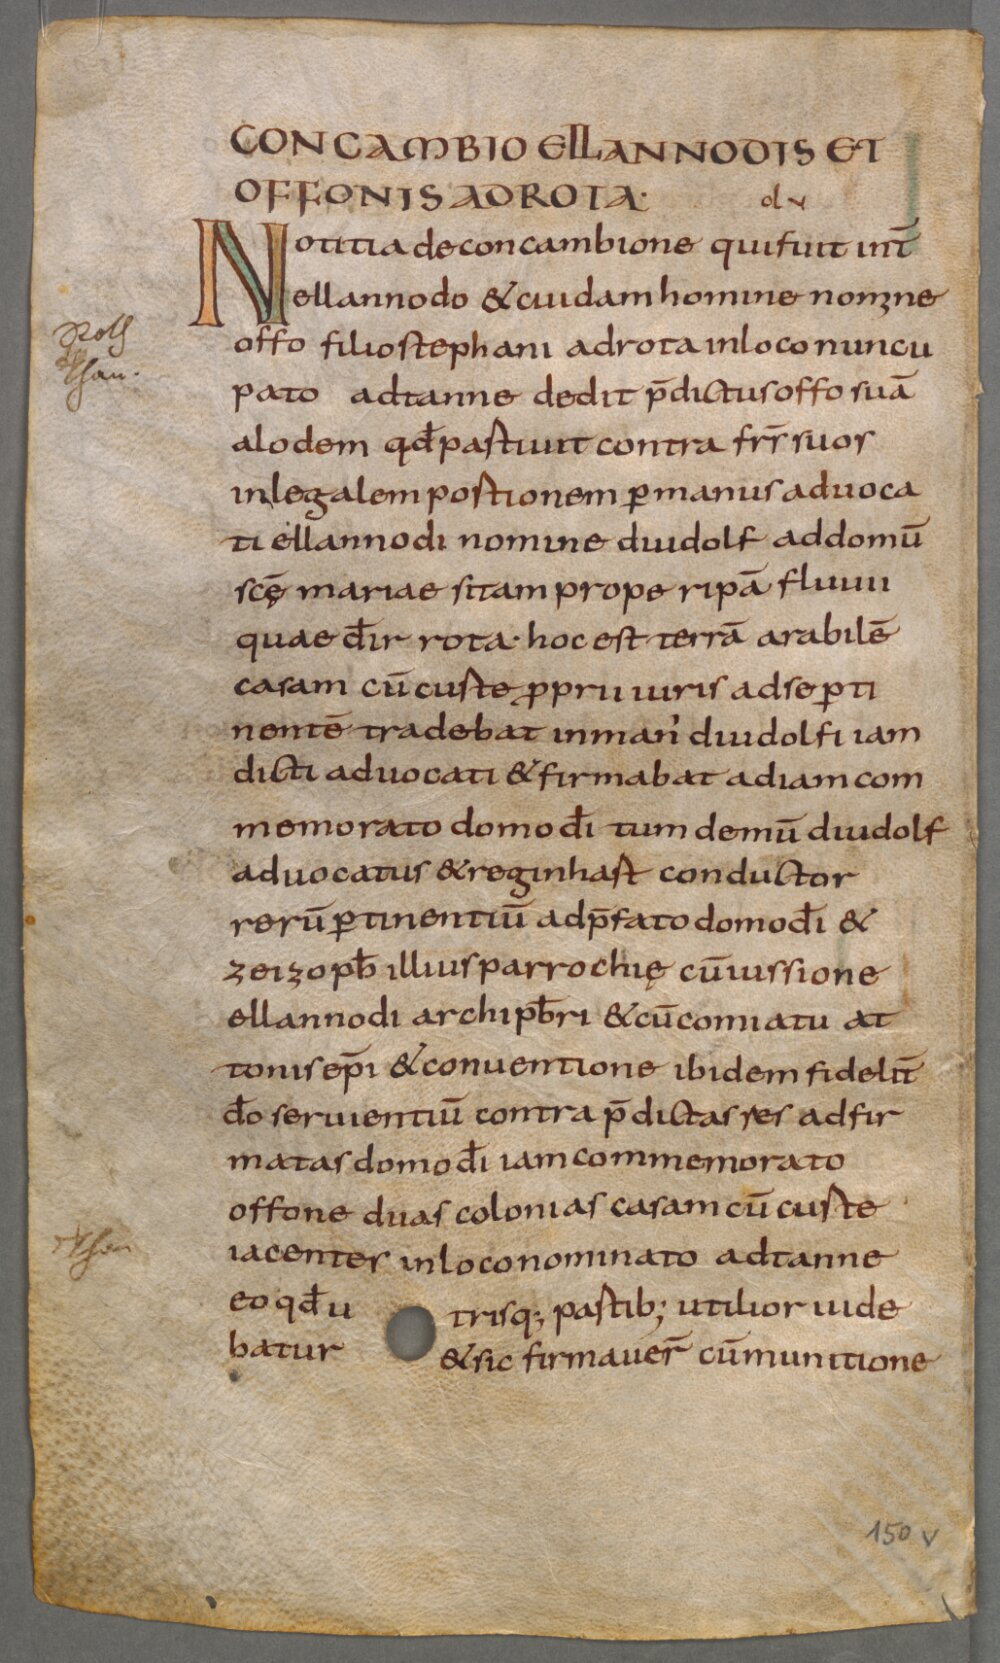 CONCAMBIO ELLANNODIS ET
OFFONIS AD ROTA·
Notitia de concambione qui fuit int̄
ellannodo & cuidam homine nomine
offo filio stephani ad rota in loco nuncu
pato ad tanne dedit p̄dictus offo suā
alodem qđ pastiuit contra frr̄ suos
in legalem postionem ꝑ manus aduoca
ti ellannodi nomine diudolf ad domū
scę̄ mariae sitam prope ripā fluuii
quae đir rota· hoc est terrā arabilē
casam cū custe ꝓprii iuris ad se ꝑti
nentē tradebat in man' diudolfi iam
dicti aduocati & firmabat ad iam com
memorato domo đi tum demū diudolf
aduocatus & reginhast conductor
rerū ꝑtinentiū ad p̄fato domo đi &
zeizo pƀ illius parrochię cū iussione
ellannodi archipƀri & cū comiatu at
tonis ep̄i & conuentione ibidem fidelit̄
đo seruientiū contra p̄dictas res adfir
matas domo đi iam commemorato
offone duas colonias casam cū custe
iacentes in loco nominato ad tanne
eo qđ u trisq; pastib; utilior uide
batur & sic firmauer̄ cū munitione
150 v